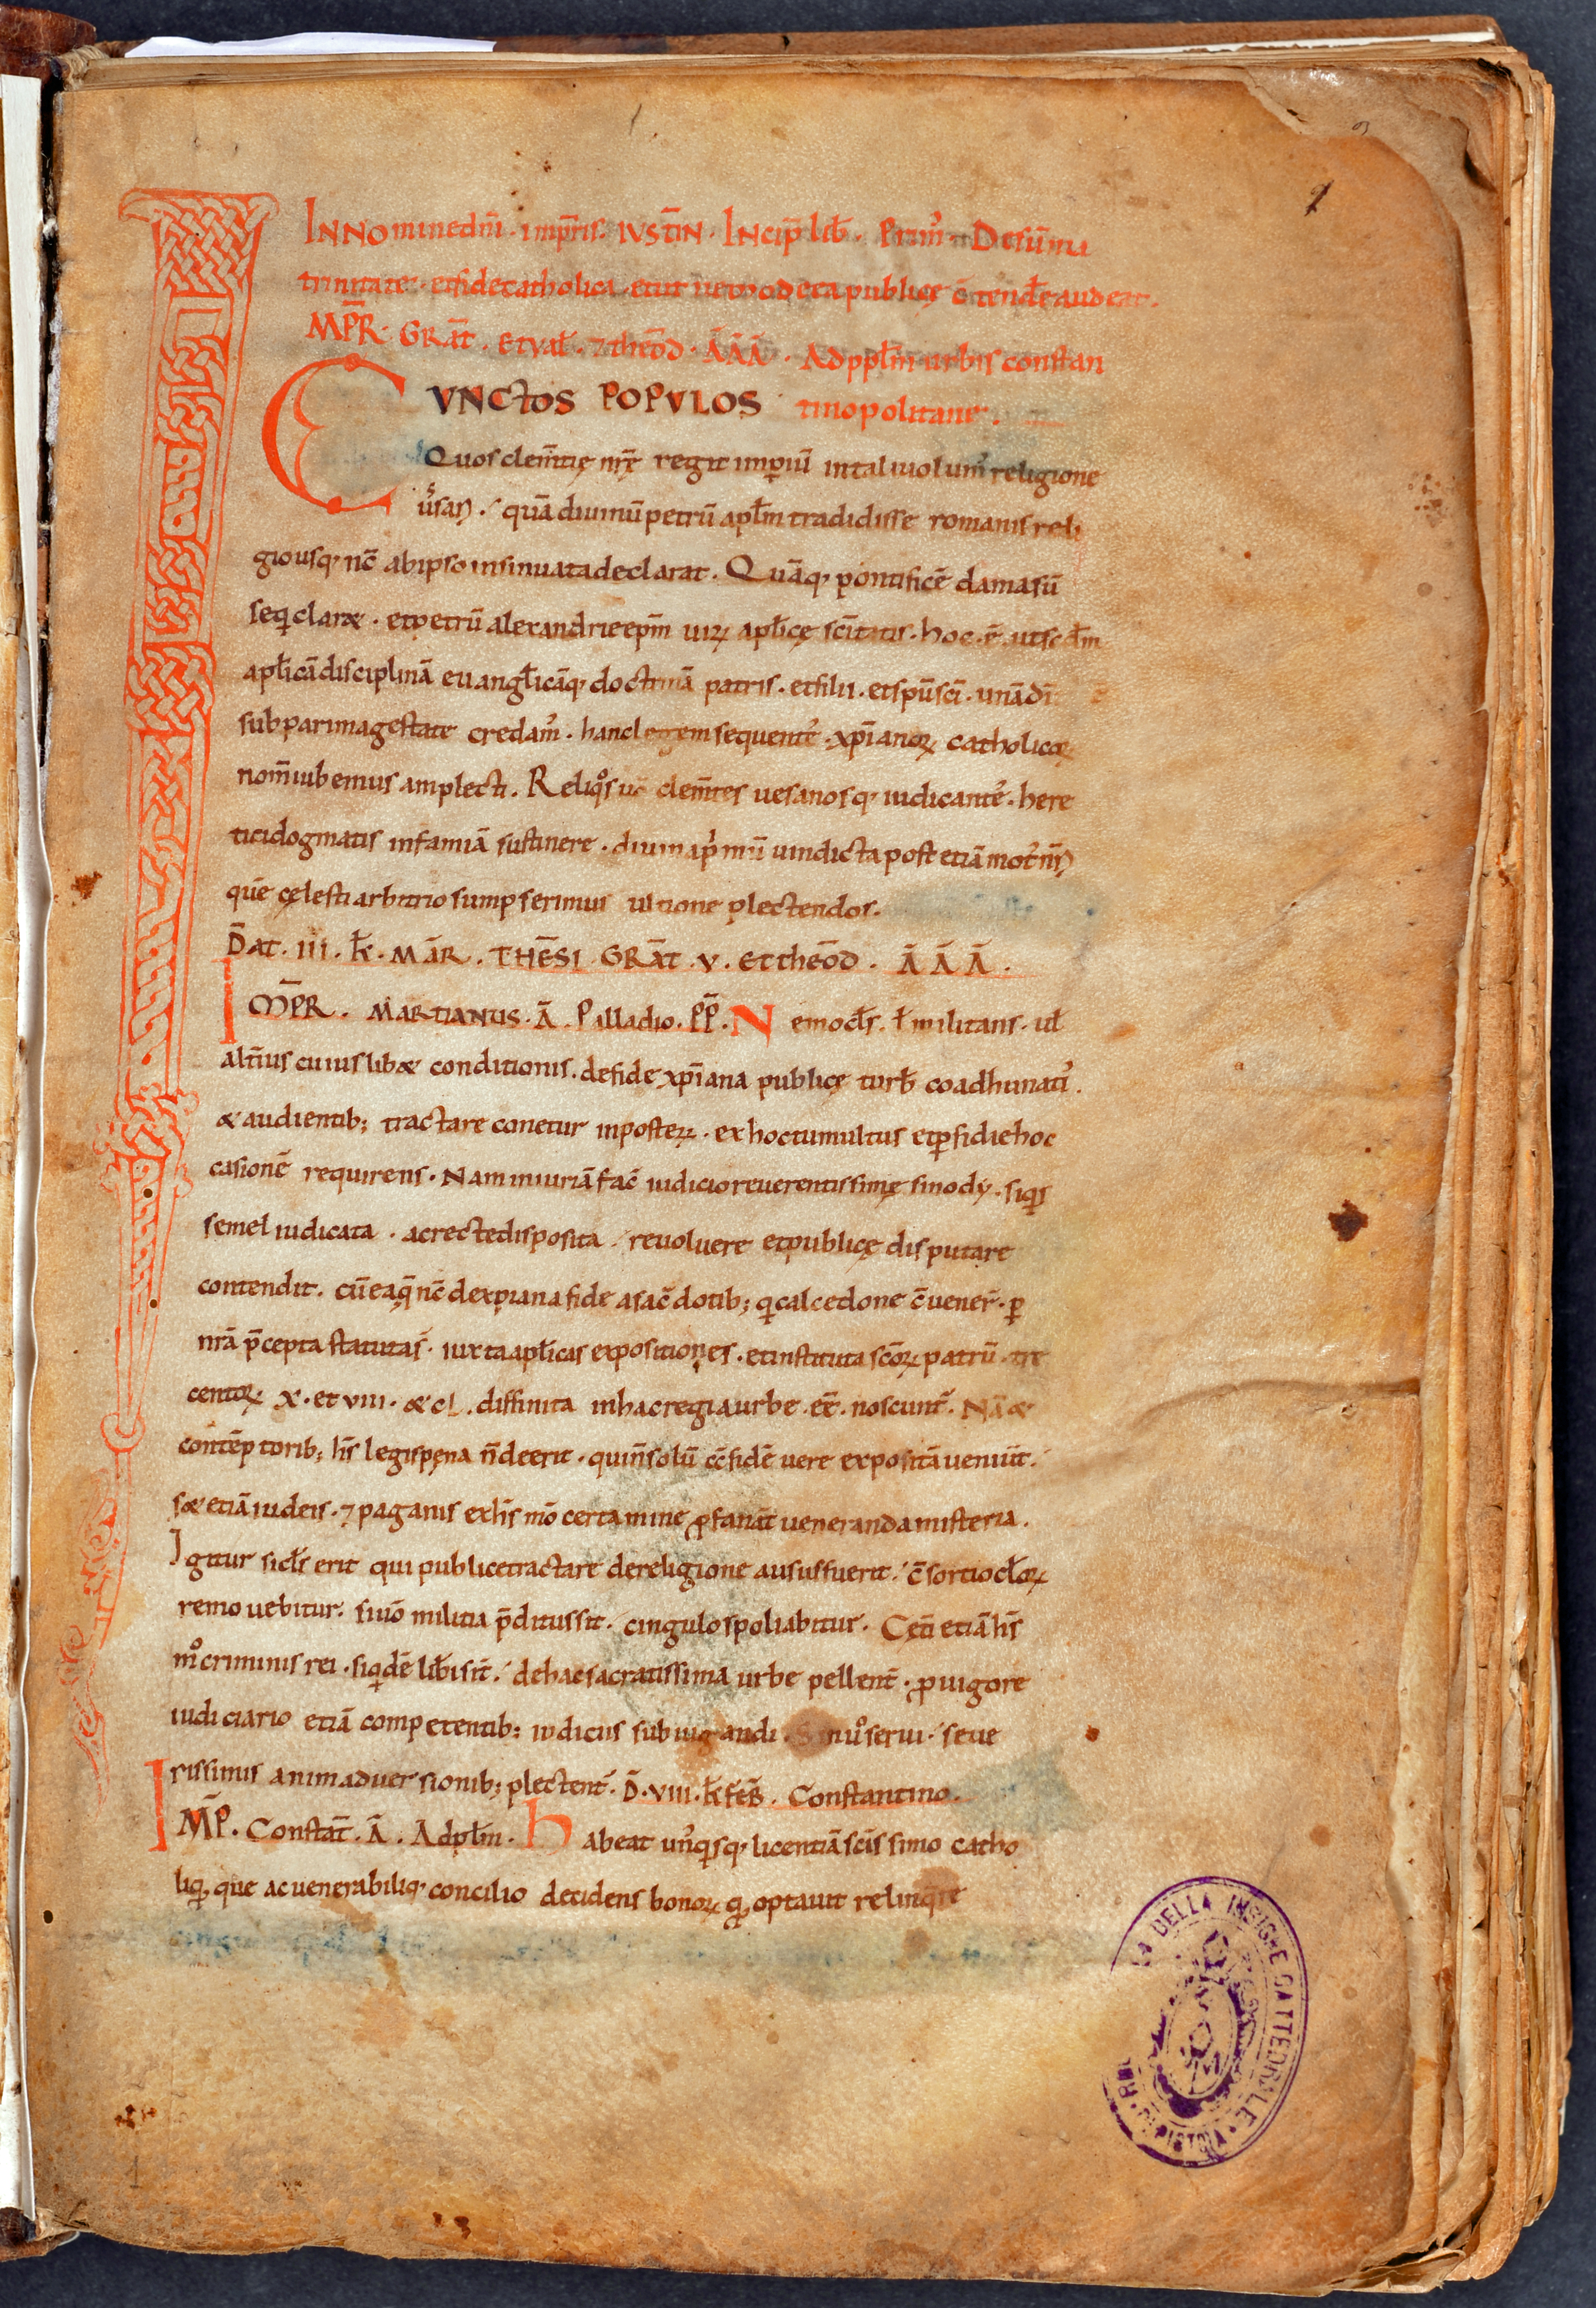 INNomine dn̄i · imp̄ris · IVSTĪN · INcip̄ lib̄ · Prim᾽ · De sūma
trinitate · et fide catholica · et ut nemo de ea publicę c̄tendere audeat ·
MP̄R · GRāt · et val̄ · ⁊ theōd · Ā Ā Ā · Ad ppl̄m urbis constan
CVNctos POPVLOS tinopolitane ·
Quos clem̄tię nr̄ę regit imperiū in tali uolum᾽ religione
u᾽sari · quā diuinū petrū apl̄m tradidisse romanis reli
gio usq; nc̄ ab ipso insinuata declarat · Quāq; pontificē damasū
seqi clar& · et petrū alexandrie ep̄m uirꝝ apl̄icę sc̄itatis · hoc · ē · ut scd̄m
apl̄icā disciplinā euangl̄icāq; doctrinā patris · et filii · et sp̄u sc̄i · unā di
sub pari magestate credam᾽ · hanc legem sequente᾽ · xp̄ianoꝝ catholicoꝝ
nom̄ iubemus amplecti · Reliqos u᾽ clem̄tes uesanosq; iudicante᾽ · here
tici dogmatis infamiā sustinere · diuina p᾽mū uindicta post etiā mot᾽ nr̄i
quē cęlesti arbitrio sumpserimus ultione plectendos.
D̄at · III · k̄ · MāR · THēSI GRāt · V · Et theōd · Ā Ā Ā ·
IMP̄R · MARTIANUS · Ā · Palladio · PP̄ · Nemo cl̄s · ł militans · ul̄
alt̄ius cuiuslib& conditionis · de fide xp̄iana publicę turb̄ coadhunati᾽ ·
& audientib; tractare conetur in posterꝝ · ex hoc tumultus et ꝑfidie hoc
casionē requirens · Nam iniuriā fac̄ iudicio reuerentissimę sinody · siqis
semel iudicata · ac recte disposita · reuoluere et publicę disputare
contendit · cū ea q̄ nc̄ de xpiana fide a sac̄dotib; qi calcedone c̄uener̄ · ꝑ
nr̄a p̄cepta statuta s̄ · iuxta apl̄icas expositiones · et instituta sc̄oꝝ patrū · tre
centoꝝ X · et VIII · & cL · diffinita in hac regia urbe · eē · noscunt̄ · Nā &
contēptorib; hi᾽s legis pęna n̄ deerit · qui n̄ solū c̄ fidē uere expositā ueniūt ·
s& etiā iudeis · ⁊ paganis ex hi᾽s mō certamine ꝓfanāt ueneranda misteria ·
Igitur si cl̄s erit qui publice tractare de religione ausus fuerit · c̄sortio cl̄oꝝ
remouebitur · si uiō militia p̄ditus sit · cingulo spoliabitur · Cęt̄i etiā hi᾽s
mōi criminis rei · siqidē lib̄i sīt · de hac sacratissima urbe pellent̄ · ꝓ uigore
iudiciario etiā competentib; iudiciis subiugandi · Si nuo serui · seue
rissimis animaduersionib; plectent̄ · D̄ · VIII · k̄ fēB · Constantino ·
IMP̄ · Constāt · Ā · Ad pl̄m · habeat un᾽qisq; licentiā sc̄issimo catho
liqi, que ac uenerabiliq; concilio decidens bonoꝝ qi optauit relinq̄re